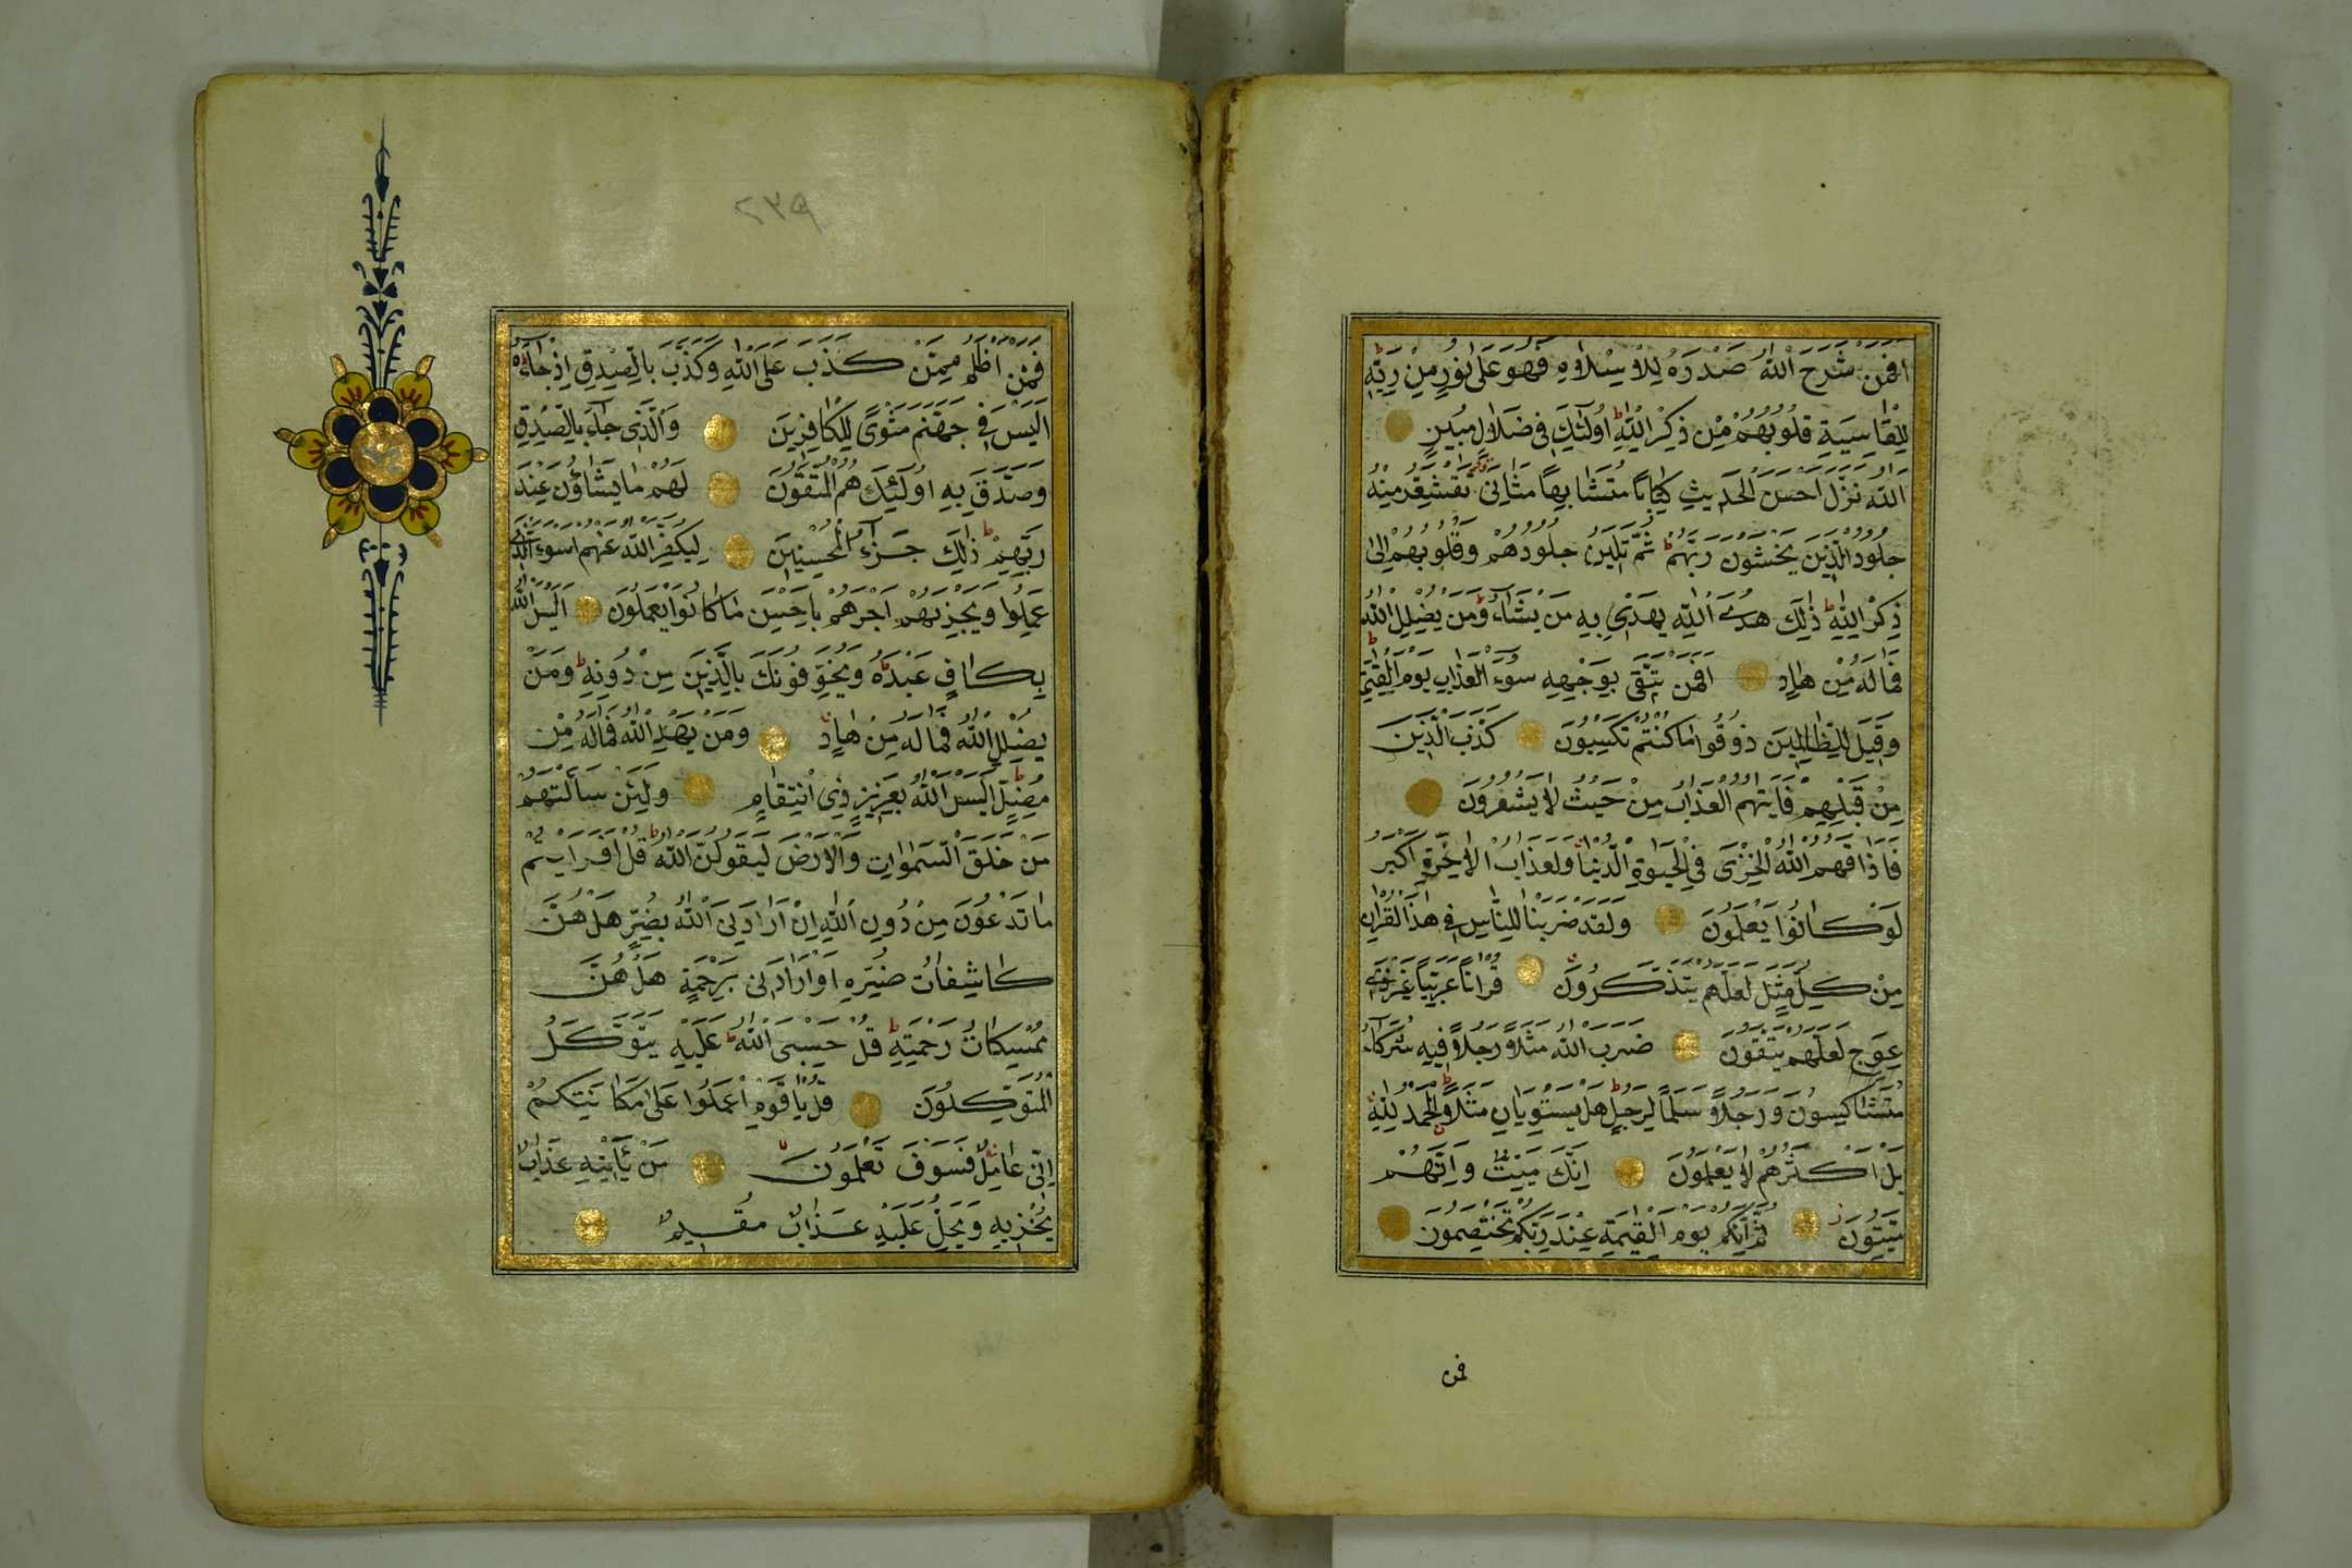 افمن شرح الله صدره للاسلام فهو على نور من ربه
للقاسية قلوبهم من ذكر الله اولئك فى ضلال مبين
الله نزل احسن الحديث كتابا متشابها مثانى تقشعر منه
جلود الذين يخشون ربهم ثم تلين جلودهم وقلوبهم الى
ذكر الله ذلك هدى الله يهدى به من يشاء ومن يضلل الله
فما له من هاد افمن يتقى بوجهه سوء العذاب يوم القيمة
وقيل للظالمين ذوقوا ما كنتم تكسبون كذب الذين
من قبلهم فاتيهم العذاب من حيث لا يشعرون
فاذاقهم الله الخزى فى الحيوة الدنيا ولعذاب الاخرة اكبر
لو كانوا يعلمون ولقد ضربنا للناس فى هذا القران
من كل مثل لعلهم يتذكرون قرانا عربيا غير ذى
عوج لعلهم يتقون ضرب الله مثلا رجلا فيه شركاء
متشاكسون ورجلا سلما لرجل هل يستويان مثلا الحمد لله
بل اكثرهم لا يعلمون انك ميت وانهم
ميتون ثم انكم يوم القيمة عند ربكم تختصمون
فمن
٢٣٩
فمن اظلم ممن كذب على الله وكذب بالصدق اذ جاءه
اليس فى جهنم مثوى للكافرين والذى جاء بالصدق
وصدق به اولئك هم المتقون لهم ما يشاؤن عند
ربهم ذلك جزاء المحسنين ليكفر الله عنهم اسوء الذى
عملوا ويجزيهم اجرهم باحسن ما كانوا يعملون اليس الله
بكاف عبده ويخوفونك بالذين من دونه ومن
يضلل الله فما له من هاد ومن يهد الله فما له من
مضل اليس الله بعزيز ذى انتقام ولئن سالتهم
من خلق السموات والارض ليقولن الله قل افرايتم
ما تدعون من دون الله ان ارادنى الله بضر هل هن
كاشفات ضره او ارادنى برحمة هل هن
ممسكات رحمته قل حسبى الله عليه يتوكل
المتوكلون قل يا قوم اعملوا على مكانتكم
انى عامل فسوف تعلمون من ياتيه عذاب
يخزيه ويحل عليه عذاب مقيم